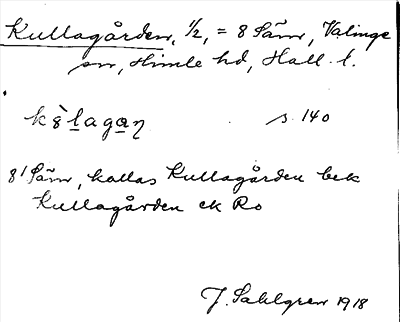 Kullagården, 1/2, = 8 Särw, Valinge
sn, Himle hd, Hall. l.
s. 140
8¹ Särw, kallas Kullagården bek
Kullagården ek Ro
J. Sahlgren 1918